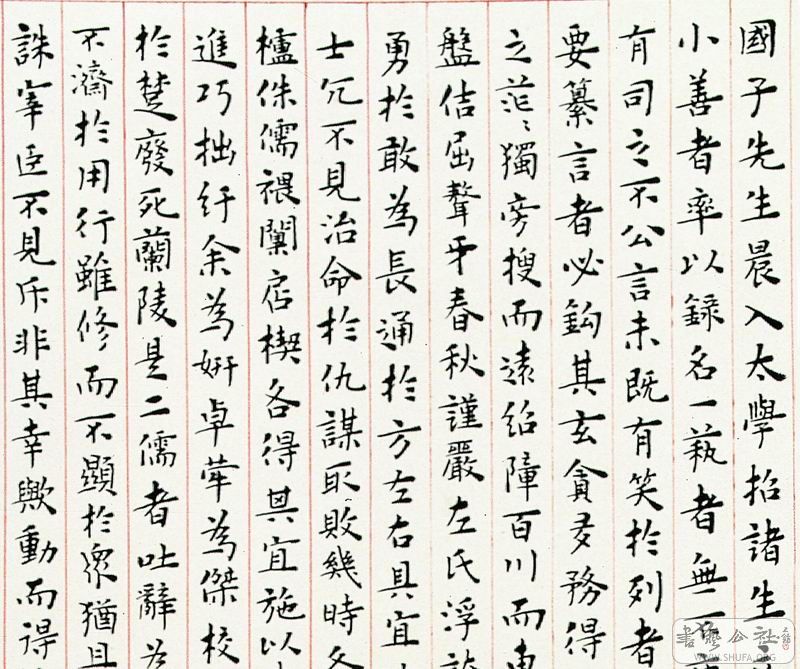 國子先生晨入太學招諸生
小善者率以錄名一蓺者無不
有司之不公言未既有笑於列者
要纂言者必鈎其玄貪多務得
之茫〻獨旁搜而遠紹障百川而東
盤佶屈聱牙春秋謹嚴左氏浮誇
勇於敢為長通於方左右具宜
士冗不見治命於仇謀取敗幾時冬
櫨侏儒椳闑扂楔各得其宜施以
進巧拙紆余為妍卓犖為傑校
於楚廢死蘭陵是二儒者吐辭為
不濟於用行雖修而不顯於衆猶且
誅宰臣不見斥非其幸歟動而得
書藝公社
WWW.SHUFA.ORG